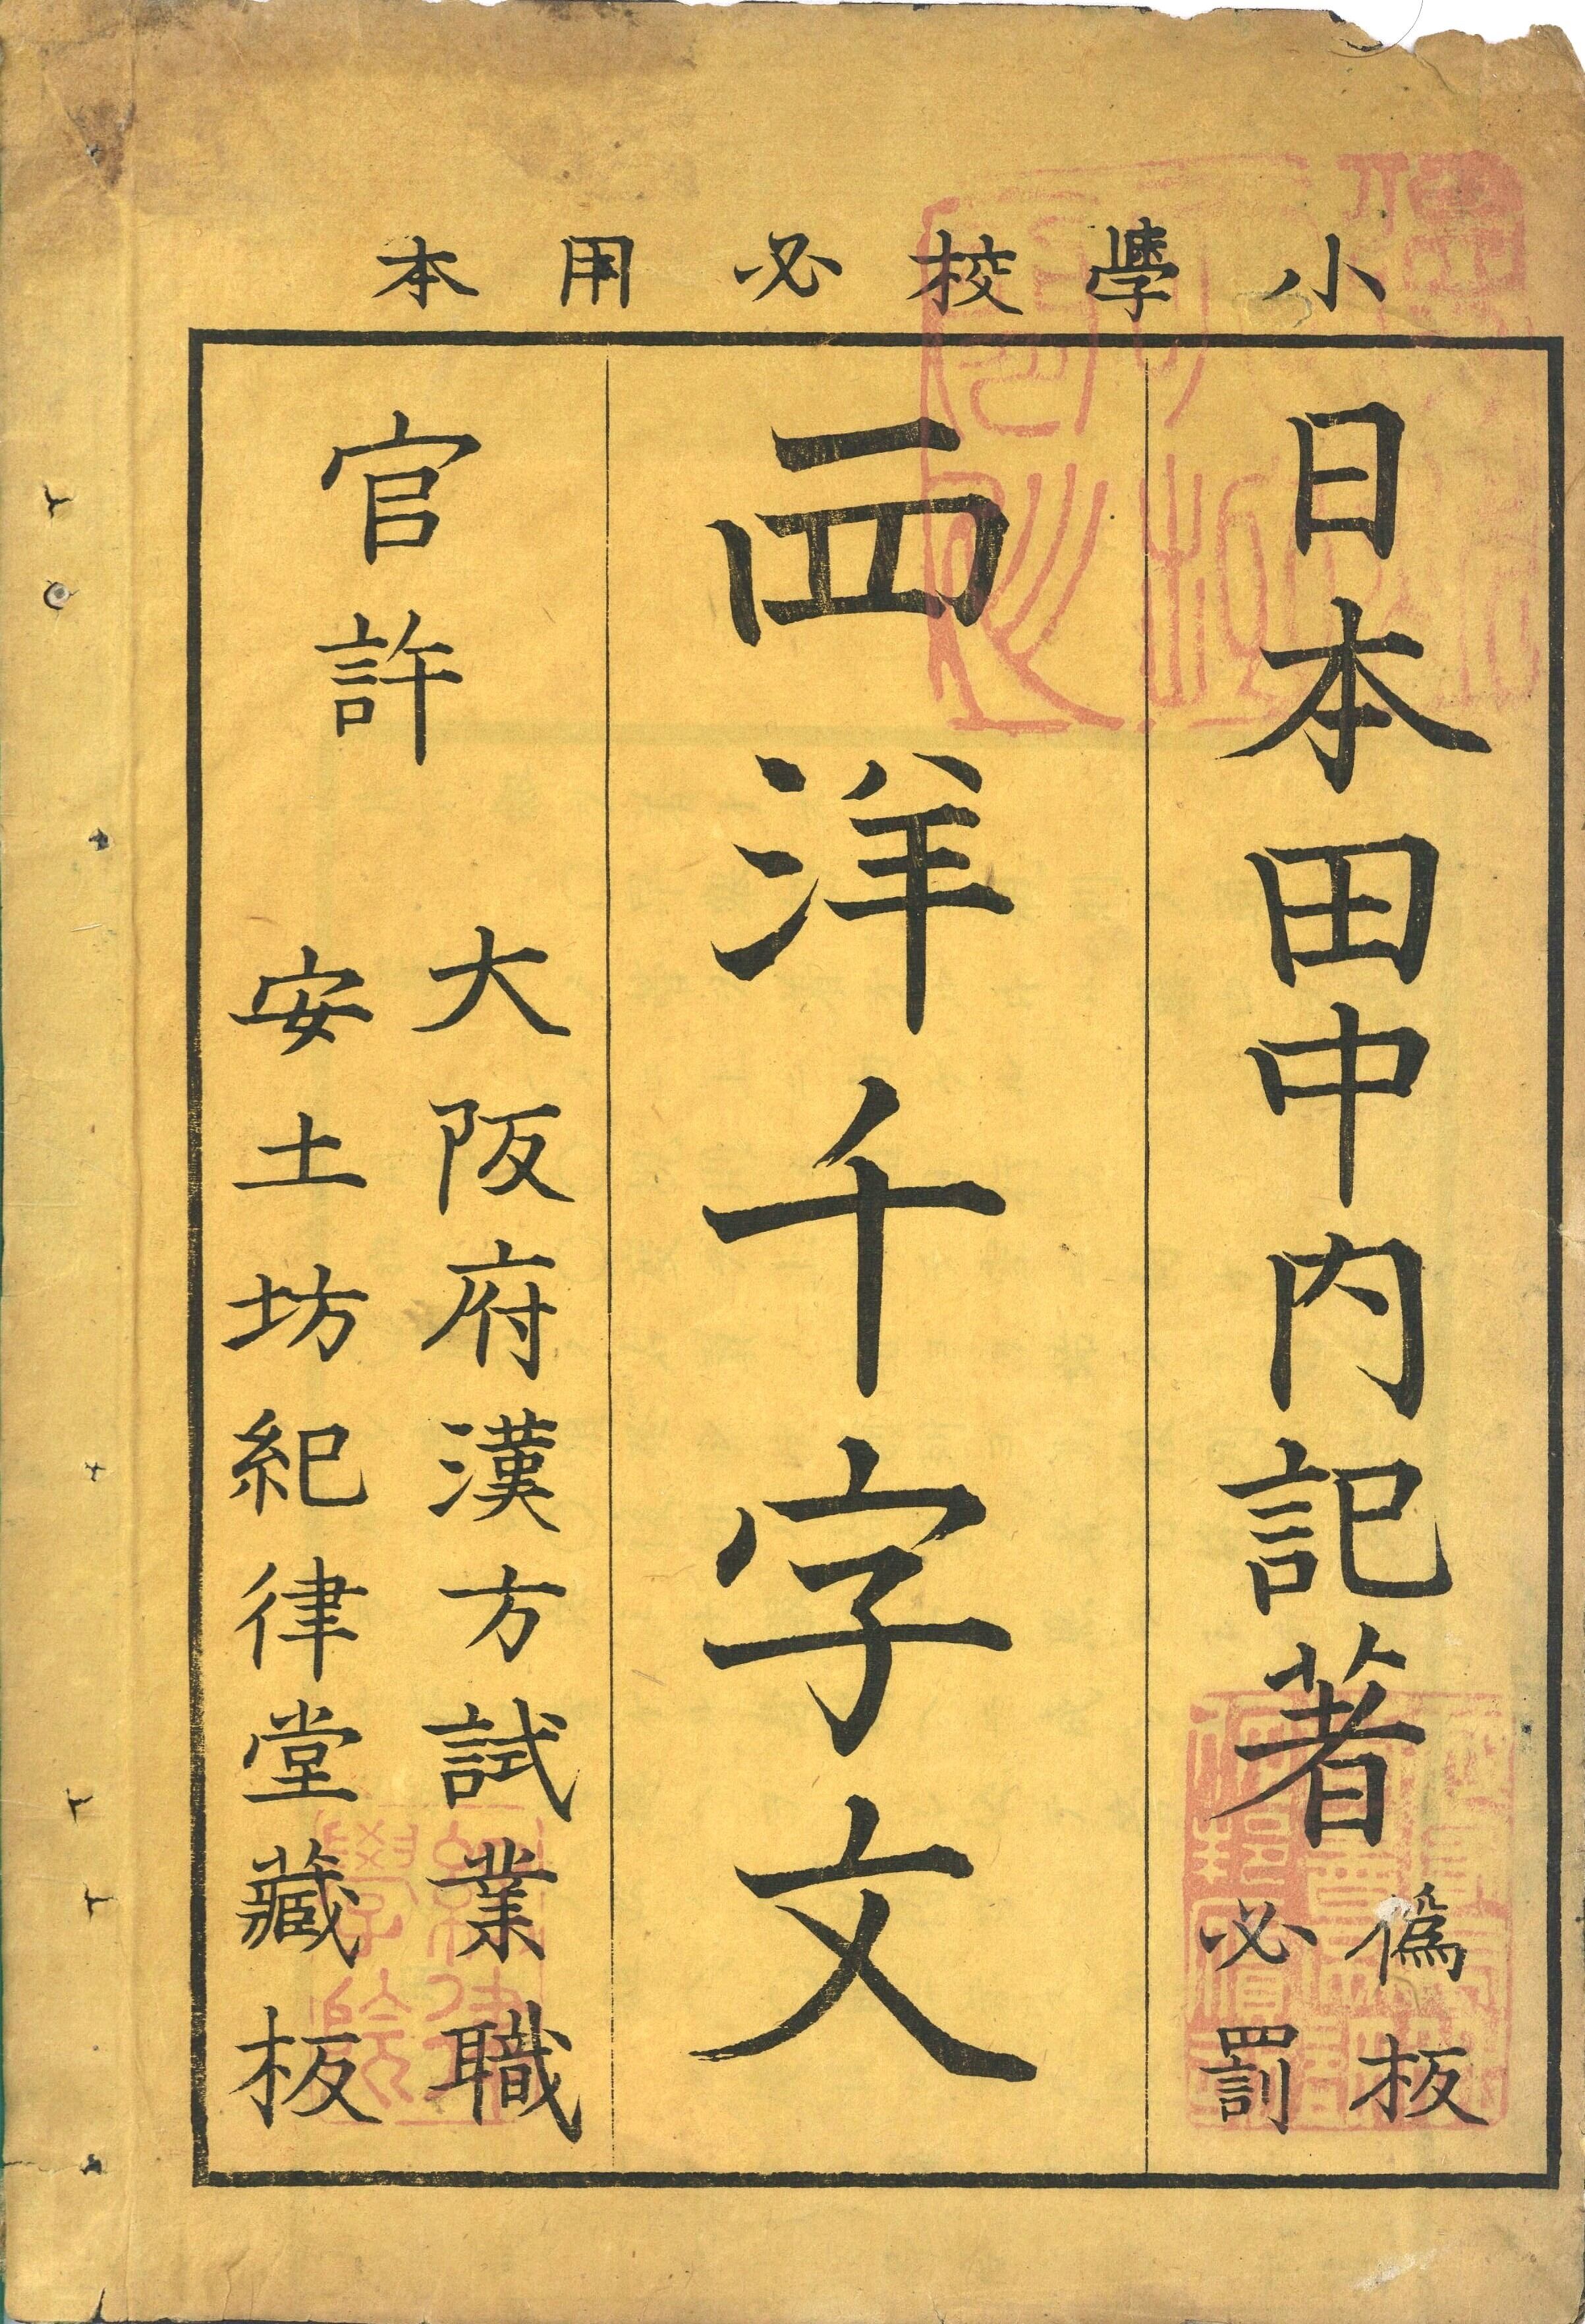 小學校必用本
日本田中内記著
偽板
必罰
西洋千字文
官許
大阪府漢方試業職
安土坊紀律堂藏板